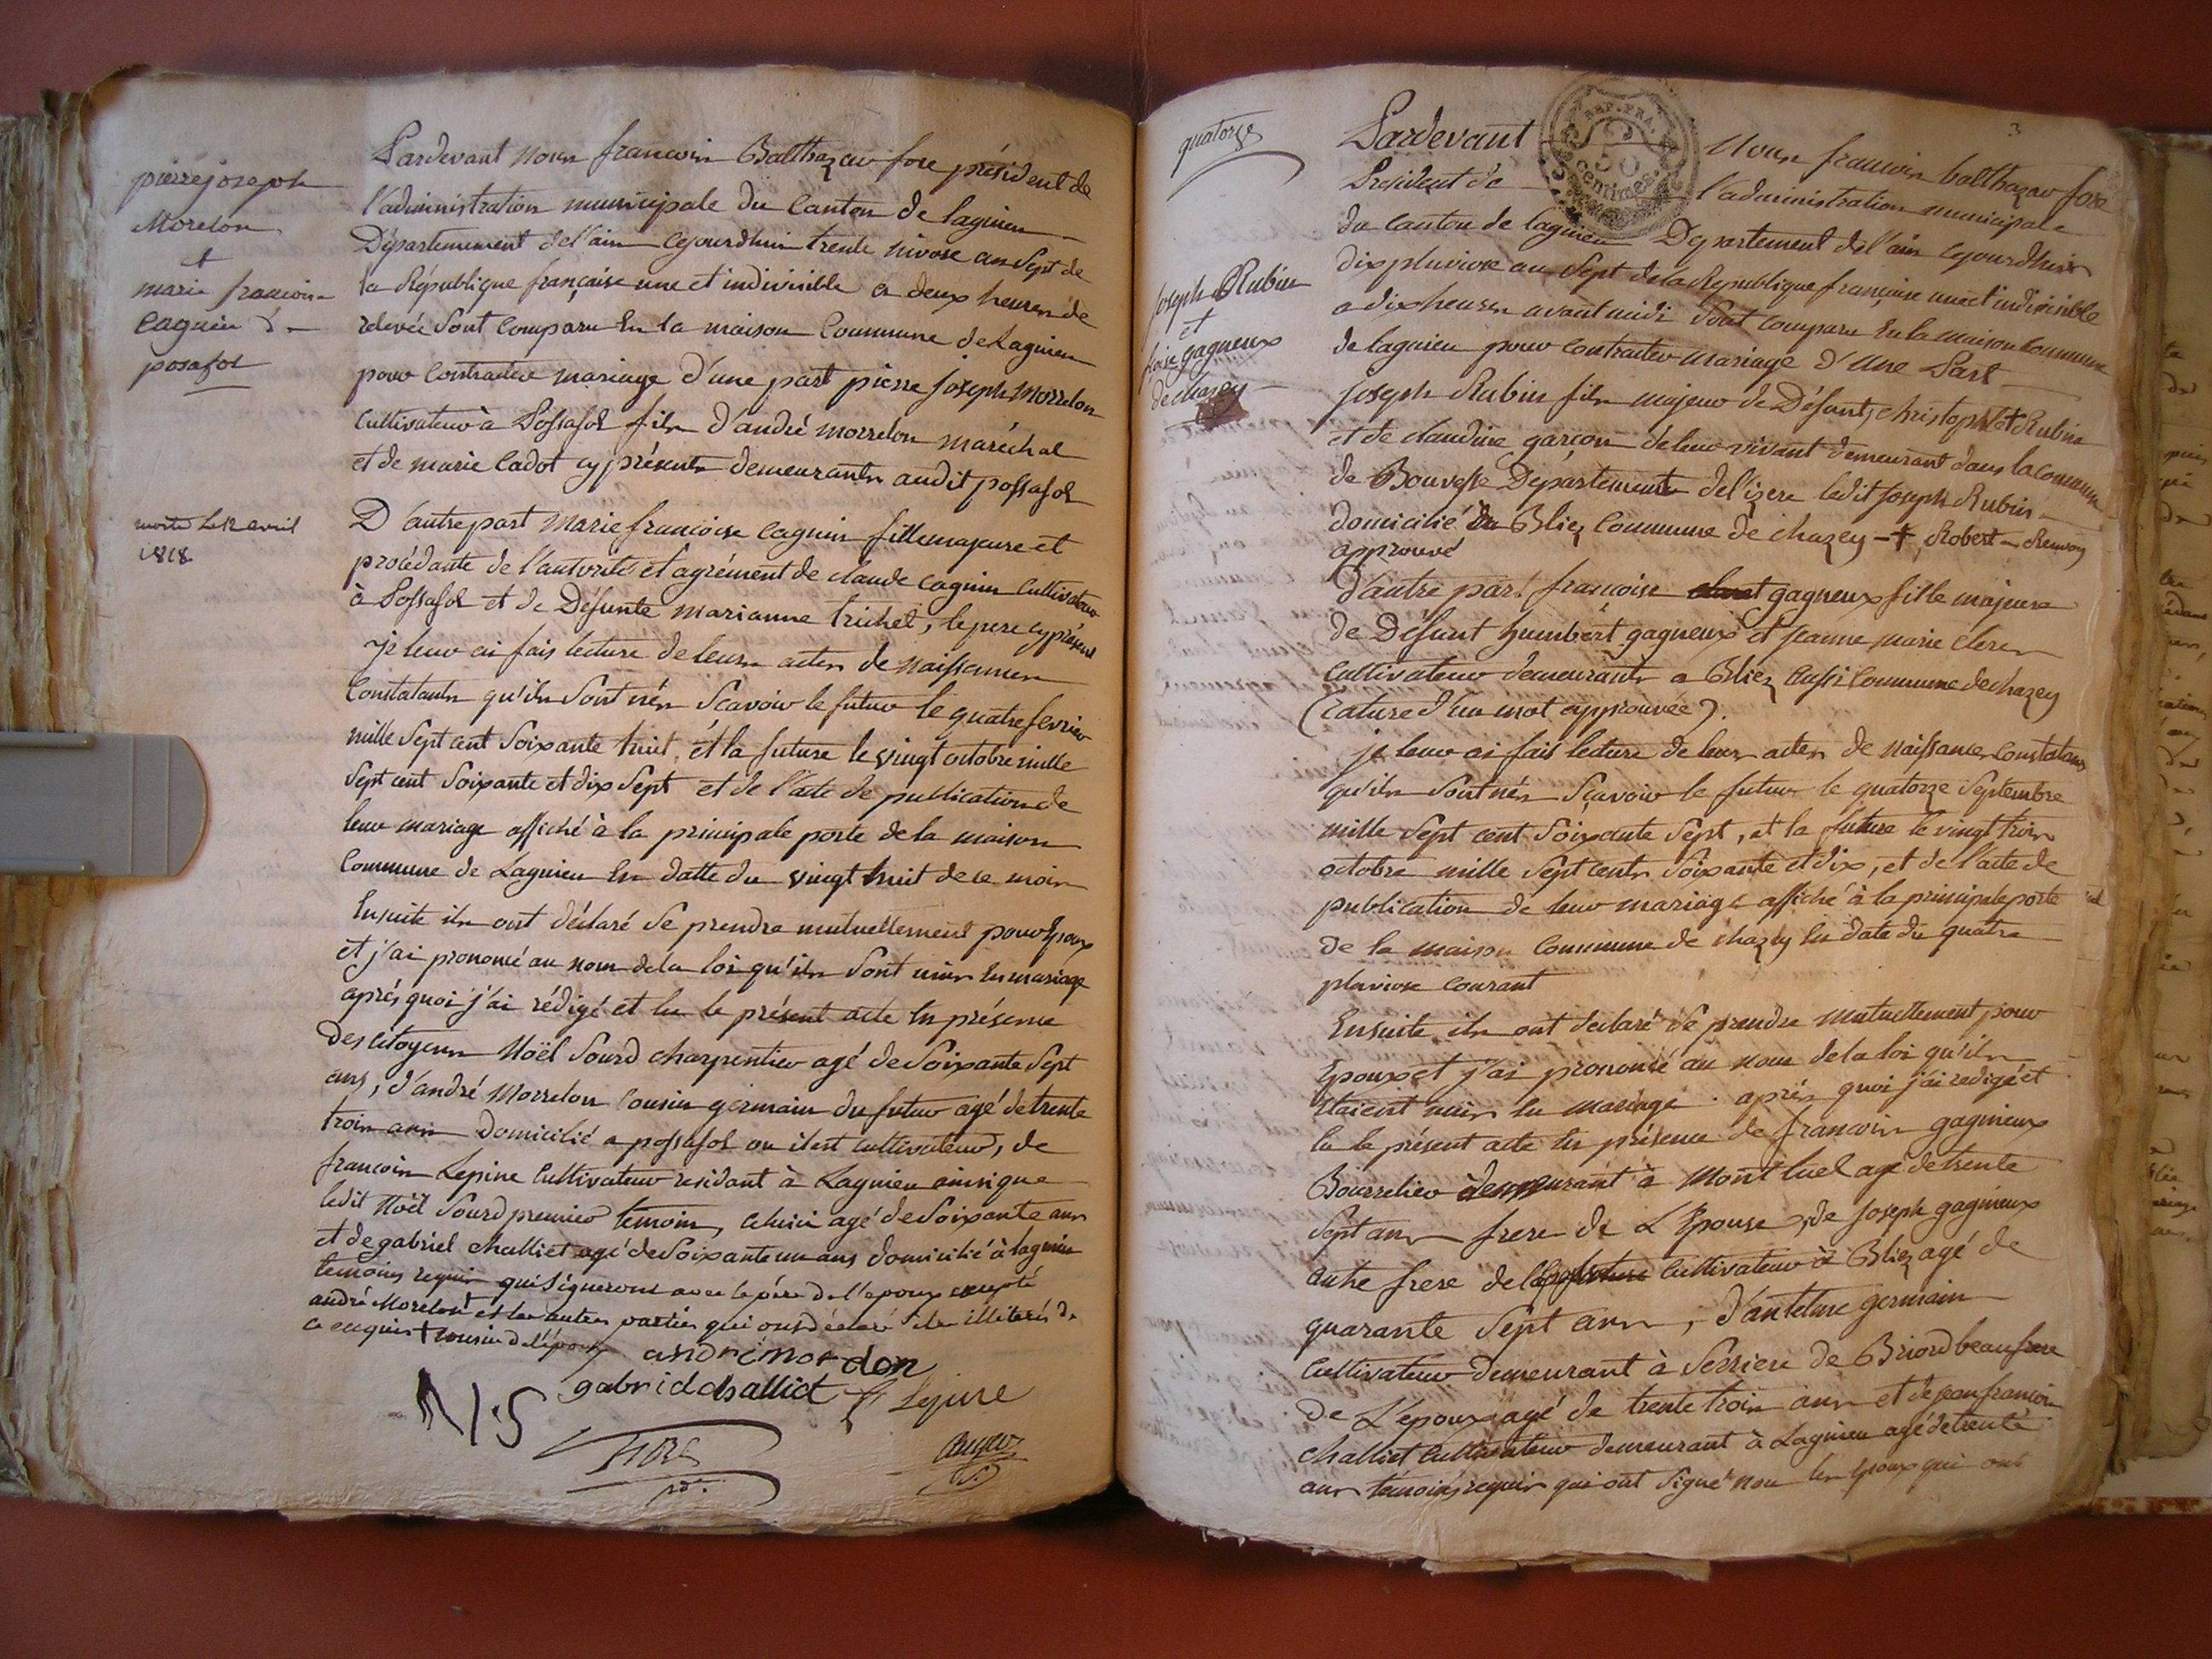 pierre joseph
Morelon
et
marie francoise
Cagnin de
posafol
morte le 12 avril
1818
Pardevant Nous francois Balthazar fore président de
l'administration municipale du Canton de lagnieu
Département de l'ain cejourdhui trente nivose an Sept de
la République française une et indivisible a deux heures de
relevée Sont Comparu En la maison Commune de Lagnieu
pour Contracter mariage d'une part pierre joseph Morrelon
Cultivateur à Possafol fils d'andré morrelon maréchal
et de marie Cadot cy présents demeurants audit possafol
D'autre part Marie francoise Cagnin fille majeure et
procédante de l'autorité et agrément de claude Cagnin Cultivateur
à Possafol et de Défunte Marianne trichet, le pere cy présent
je leur ai fais lecture de leurs actes de Naissances
Constatants qu'ils Sont nés Scavoir le futur le quatre fevrier
mille Sept cent Soixante huit, et la future le vingt octobre mille
Sept cent Soixante et dix Sept et de l'acte de publication de
leur mariage affiché à la principale porte de la maison
Commune de Lagnieu En datte du vingt huit de ce mois
Ensuite ils ont déclaré Se prendre mutuellement pour Epoux
et j'ai prononcé au nom de la loi qu'ils Sont unis En mariage
après quoi j'ai rédigé et lu le présent acte En présence
Des Citoyens Noël Sourd charpentier agé de Soixante Sept
ans, d'andré Morrelon Cousin germain du futur agé de trente
trois ans Domicilié a possafol ou il est Cultivateur, de
francois Lepine Cultivateur residant à Lagnieu ainsi que
ledit Noël Sourd premier temoin, celuici agé de Soixante ans
et de gabriel challiet agé de Soixante un ans domicilié à lagnieu
temoins requis qui Signeront avec le père de l'epoux excepté
andré Morelon † et les autres parties qui ont déclaré être illiterés de
ce enquis † cousin de l'époux
andrémorelon
gabrielchalliet f Lepine
N S
FORE
pdt.
quatorze
3
REP. FRA.
50
Centimes
joseph Rubin
et
foise gagneux
de chazey
Pardevant Nous francois balthazar fore
President de l'administration municipale
du Canton de lagnieu Departement de l'ain cejourdhuis
dix pluviose an Sept de la Republique francaise une et indivisible
a dix heures avant midi Sont comparu En la maison commune
de lagnieu pour contracter mariage d'Une Part
joseph Rubin fils majeur de Défunts christophle Rubin
et de claudine garçon de leur vivant demeurant dans la commune
de Bouvesse Departement de l'izere ledit joseph Rubin
domicilié à Bliez Commune de chazey - † Robert - Renvoy
approuvé
D'autre part francoise gagneux fille majeure
de Défunt humbert gagneux et jeanne marie clerc
Cultivateur demeurants a Bliez aussi Commune de chazey
(rature d'un mot approuvée).
je leur ai fais lecture de leurs actes de naissances constatans
qu'ils Sont nés Scavoir le futur le quatorze Septembre
mille Sept cent Soixante Sept, et la future le vingt trois
octobre mille Sept cents Soixante et dix, et de l'acte de
publication de leur mariage affiché à la principale porte
de la maison Commune de chazey En date du quatre
pluviose Courant
Ensuite ils ont declaré Se prendre Mutuellement pour
Epoux et j'ai prononcé au nom de la loi qu'ils
Etaient unis En mariage. après quoi j'ai redigé et
lu le présent acte En présence de francois gagnieux
Bourrelier demeurant à Mont luel agé de trente
Sept ans frere de L'Epouse, de joseph gagnieux
autre frere de Cultivateur à Bliez agé de
quarante Sept ans, d'antelme germain
Cultivateur demeurant à Serriere de Briord beaufrere
de L'epoux agé de trente trois ans et de jean francois
challiet Cultivateur demeurant à Lagnieu agé de trente
ans temoins requis qui ont Signé non les Epoux qui ont